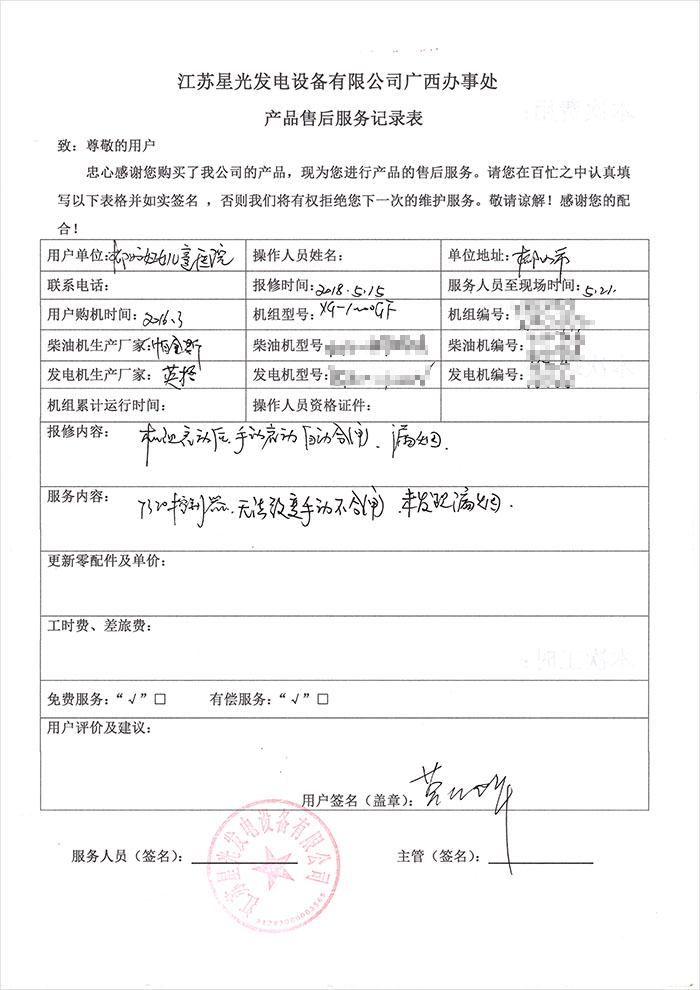 江苏星光发电设备有限公司广西办事处
产品售后服务记录表
致：尊敬的用户
忠心感谢您购买了我公司的产品，现为您进行产品的售后服务。请您在百忙之中认真填
写以下表格并如实签名 ，否则我们将有权拒绝您下一次的维护服务。敬请谅解！感谢您的配
合！
用户单位：柳州妇女儿童医院 操作人员姓名： 单位地址：柳州市
联系电话： 报修时间：2018.5.15 服务人员至现场时间：5.21.
用户购机时间：2016.3 机组型号：XG-1000GF 机组编号：
柴油机生产厂家： 柴油机型号 柴油机编号：
发电机生产厂家：英格 发电机型号： 发电机编号：
机组累计运行时间： 操作人员资格证件：
报修内容： 机组启动后,手动启动自动合闸、漏烟.
服务内容： 7320控制器,无法改变手动不合闸 未发现漏烟.
更新零配件及单价：
工时费、差旅费：
免费服务：“√”□ 有偿服务：“√”□
用户评价及建议：
用户签名（盖章）：
服务人员（签名）： 主管（签名）：
江苏星光发电设备有限公司